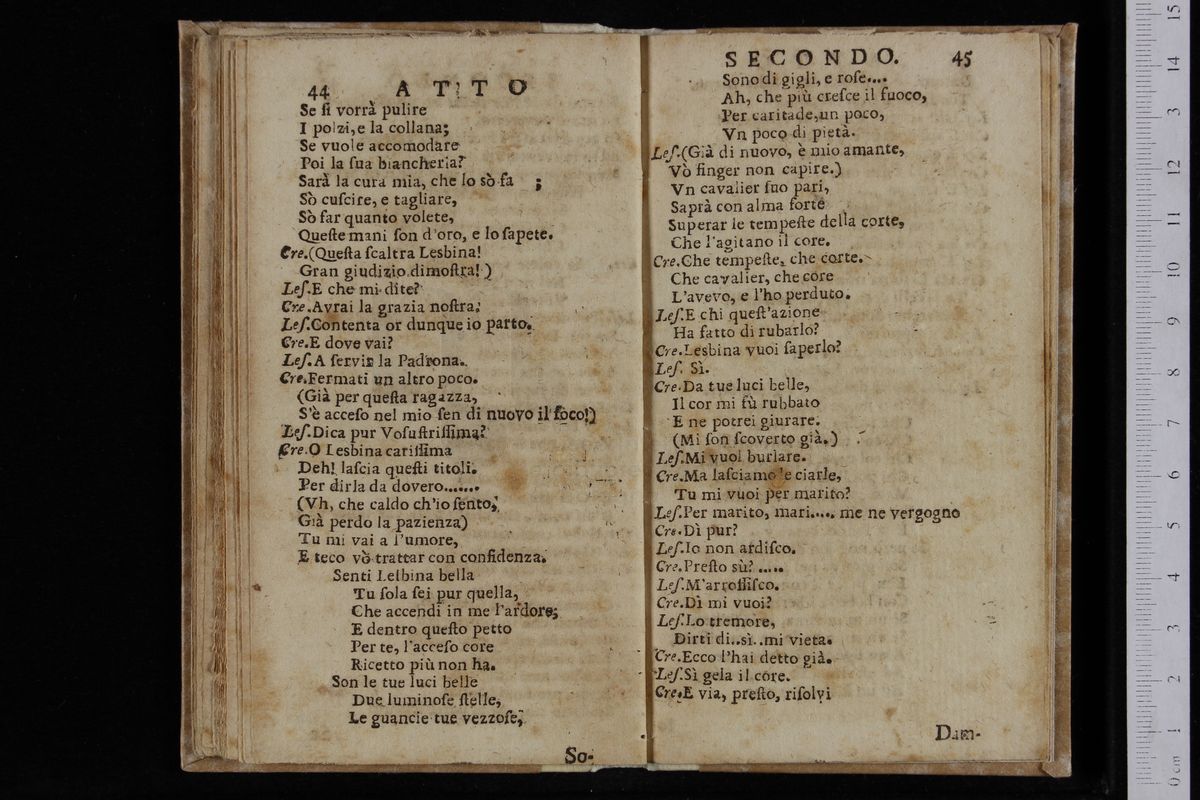 44 A T T O
Se ſi vorrà pulire
I polzi, e la collana;
Se vuole accomodare
Poi la ſua biancheria?
Sarà la cura mia, che lo sò fa ;
Sò cuſcire, e tagliare,
Sò far quanto volete,
Queſte mani ſon d'oro, e lo ſapete.
Cre.(Queſta ſcaltra Lesbina!
Gran giudizio dimoſtra!)
Leſ.E che mi dite?
Cre.Avrai la grazia noſtra;
Leſ.Contenta or dunque io parto.
Cre.E dove vai?
Leſ.A ſervir la Padrona.
Cre.Fermati un altro poco.
(Già per queſta ragazza,
S'è acceſo nel mio ſen di nuovo il foco!)
Leſ.Dica pur Voſuſtriſſima?
Cre.O Lesbina cariſſima
Deh! laſcia queſti titoli.
Per dirla da dovero.......
(Vh, che caldo ch'io ſento,
Già perdo la pazienza)
Tu mi vai a l'umore,
E teco vò trattar con confidenza.
Senti Leſbina bella
Tu ſola ſei pur quella,
Che accendi in me l'ardore;
E dentro queſto petto
Per te, l'acceſo core
Ricetto più non ha.
Son le tue luci belle
Due luminoſe ſtelle,
Le guancie tue vezzoſe,
So-
SECONDO. 45
Sono di gigli, e roſe....
Ah, che più creſce il fuoco,
Per caritade, un poco,
Vn poco di pietà.
Leſ.(Già di nuovo, è mio amante,
Vò finger non capire.)
Vn cavalier ſuo pari,
Saprà con alma forte
Superar le tempeſte della corte,
Che l'agitano il core.
Cre.Che tempeſte, che corte.
Che cavalier, che core
L'avevo, e l'ho perduto.
Leſ.E chi queſt'azione
Ha fatto di rubarlo?
Cre.Lesbina vuoi ſaperlo?
Leſ. Sì.
Cre.Da tue luci belle,
Il cor mi fù rubbato
E ne potrei giurare.
(Mi ſon ſcoverto già.)
Leſ.Mi vuoi burlare.
Cre.Ma laſciamo 'e ciarle,
Tu mi vuoi per marito?
Leſ.Per marito, mari.... me ne vergogno
Cre.Dì pur?
Leſ.Io non ardiſco.
Cre.Preſto sù? .....
Leſ.M'arroſſiſco.
Cre.Dì mi vuoi?
Leſ.Lo tremore,
Dirti di..sì..mi vieta.
Cre.Ecco l'hai detto già.
Leſ.Sì gela il core.
Cre.E via, preſto, riſolvi
Dam-